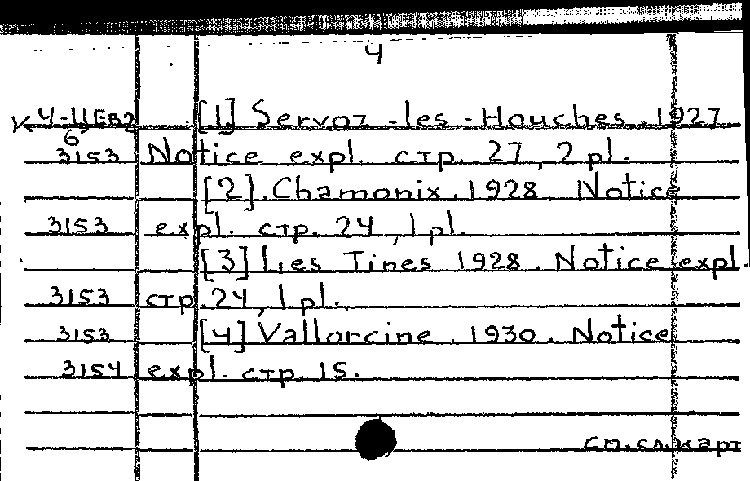 4
4-11EB2 [1] Servoz -les -Houches. 1927
6
3153 Notice expl. стр. 27, 2 pl.
[2]. Chamonix. 1928 Notice
3153 expl. стр. 24, 1 pl.
[3] Les Tines 1928. Notice expl.
3153 стр. 24, 1 pl.
3153 [4] Vallorcine. 1930. Notice
3154 expl. стр. 15.
см.сл.карт